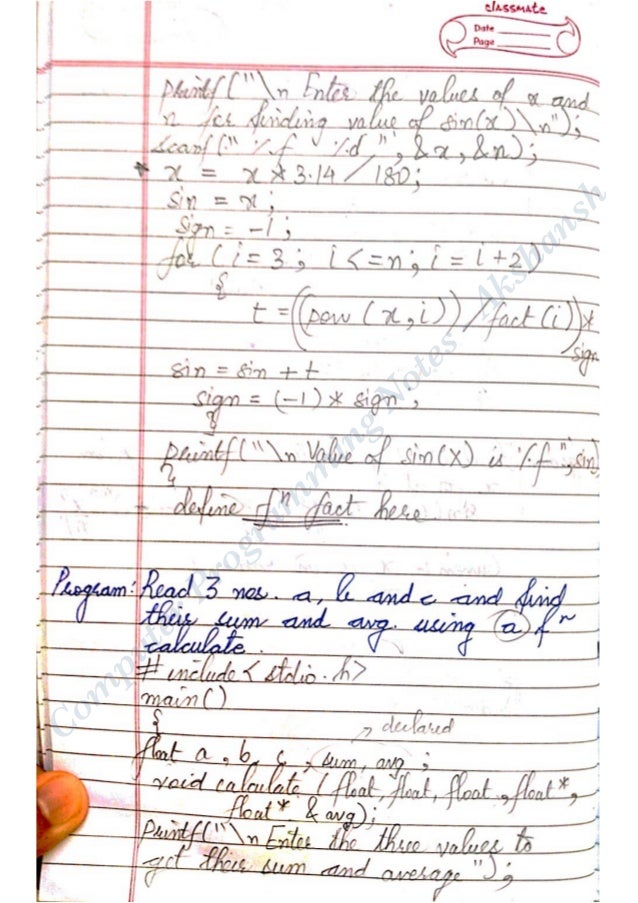 classmate
Date
Page
printf("\n Enter the values of x and
n for finding value of sin(x)\n");
scanf("%f %d", &x, &n);
* x = x*3.14/180;
sin = x;
sign = -1;
for (i=3; i<=n; i=i+2)
{
t = ((pow(x,i))/fact(i))*
sign
sin = sin + t
sign = (-1)* sign,
}
printf("\n Value of sin(x) is %f",sin)
}
- define fⁿ fact here
Program: Read 3 nos. a, b and c and find
their sum and avg. using a fⁿ
calculate.
# include< stdio.h>
main()
{
→ declared
float a, b, c, sum, avg;
void calculate (float, float, float, float*,
float* & avg);
printf("\n Enter the three values to
get their sum and average");
Computer Programming Notes Akshansh